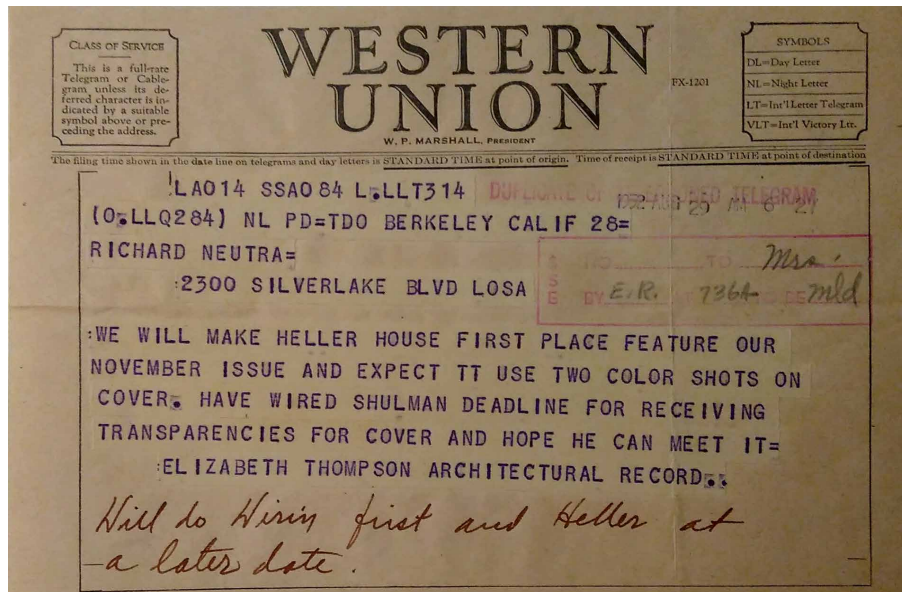 CLASS OF SERVICE
This is a full-rate
Telegram or Cable-
gram unless its de-
ferred character is in-
dicated by a suitable
symbol above or pre-
ceding the address.
WESTERN
UNION
W. P. MARSHALL, PRESIDENT
FX-1201
SYMBOLS
DL=Day Letter
NL=Night Letter
LT=Int'l Letter Telegram
VLT=Int'l Victory Ltr.
The filing time shown in the date line on telegrams and day letters is STANDARD TIME at point of origin. Time of receipt is STANDARD TIME at point of destination
LA014 SSA084 L.LLT314
DUPLICATE OF TELEPHONED TELEGRAM
1952 AUG 29 AM 6 21
(O.LLQ284) NL PD=TDO BERKELEY CALIF 28=
RICHARD NEUTRA=
:2300 SILVERLAKE BLVD LOSA
TO Mrs.
BY E.R. 736A mld
:WE WILL MAKE HELLER HOUSE FIRST PLACE FEATURE OUR
NOVEMBER ISSUE AND EXPECT TT USE TWO COLOR SHOTS ON
COVER. HAVE WIRED SHULMAN DEADLINE FOR RECEIVING
TRANSPARENCIES FOR COVER AND HOPE HE CAN MEET IT=
:ELIZABETH THOMPSON ARCHITECTURAL RECORD..
Will do Wirin first and Heller at
a later date.